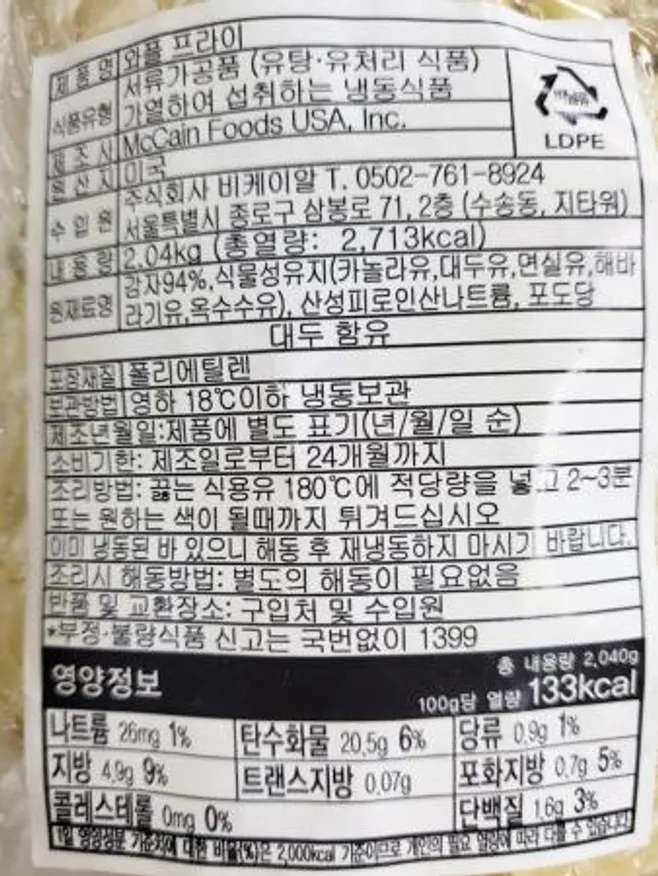 제품명 와플 프라이
식품유형 서류가공품 (유탕·유처리 식품)
가열하여 섭취하는 냉동식품
제조사 McCain Foods USA, Inc.
원산지 미국
수입원 주식회사 비케이알 T. 0502-761-8924
서울특별시 종로구 삼봉로 71, 2층 (수송동, 지타워)
내용량 2.04kg (총열량: 2,713kcal)
원재료명 감자94%,식물성유지(카놀라유,대두유,면실유,해바
라기유,옥수수유), 산성피로인산나트륨, 포도당
대두 함유
포장재질 폴리에틸렌
보관방법 영하 18℃이하 냉동보관
제조년월일:제품에 별도 표기(년/월/일 순)
소비기한: 제조일로부터 24개월까지
조리방법: 끓는 식용유 180℃에 적당량을 넣고 2~3분
또는 원하는 색이 될때까지 튀겨드십시오
이미 냉동된 바 있으니 해동 후 재냉동하지 마시기 바랍니다.
조리시 해동방법: 별도의 해동이 필요없음
반품 및 교환장소: 구입처 및 수입원
*부정·불량식품 신고는 국번없이 1399
LDPE
영양정보
총 내용량 2,040g
100g당 열량 133kcal
나트륨 26mg 1% 탄수화물 20.5g 6% 당류 0.9g 1%
지방 4.9g 9% 트랜스지방 0.07g 포화지방 0.7g 5%
콜레스테롤 0mg 0% 단백질 1.6g 3%
1일 영양성분 기준치에 대한 비율(%)은 2,000kcal 기준이므로 개인의 필요 열량에 따라 다를 수 있습니다.